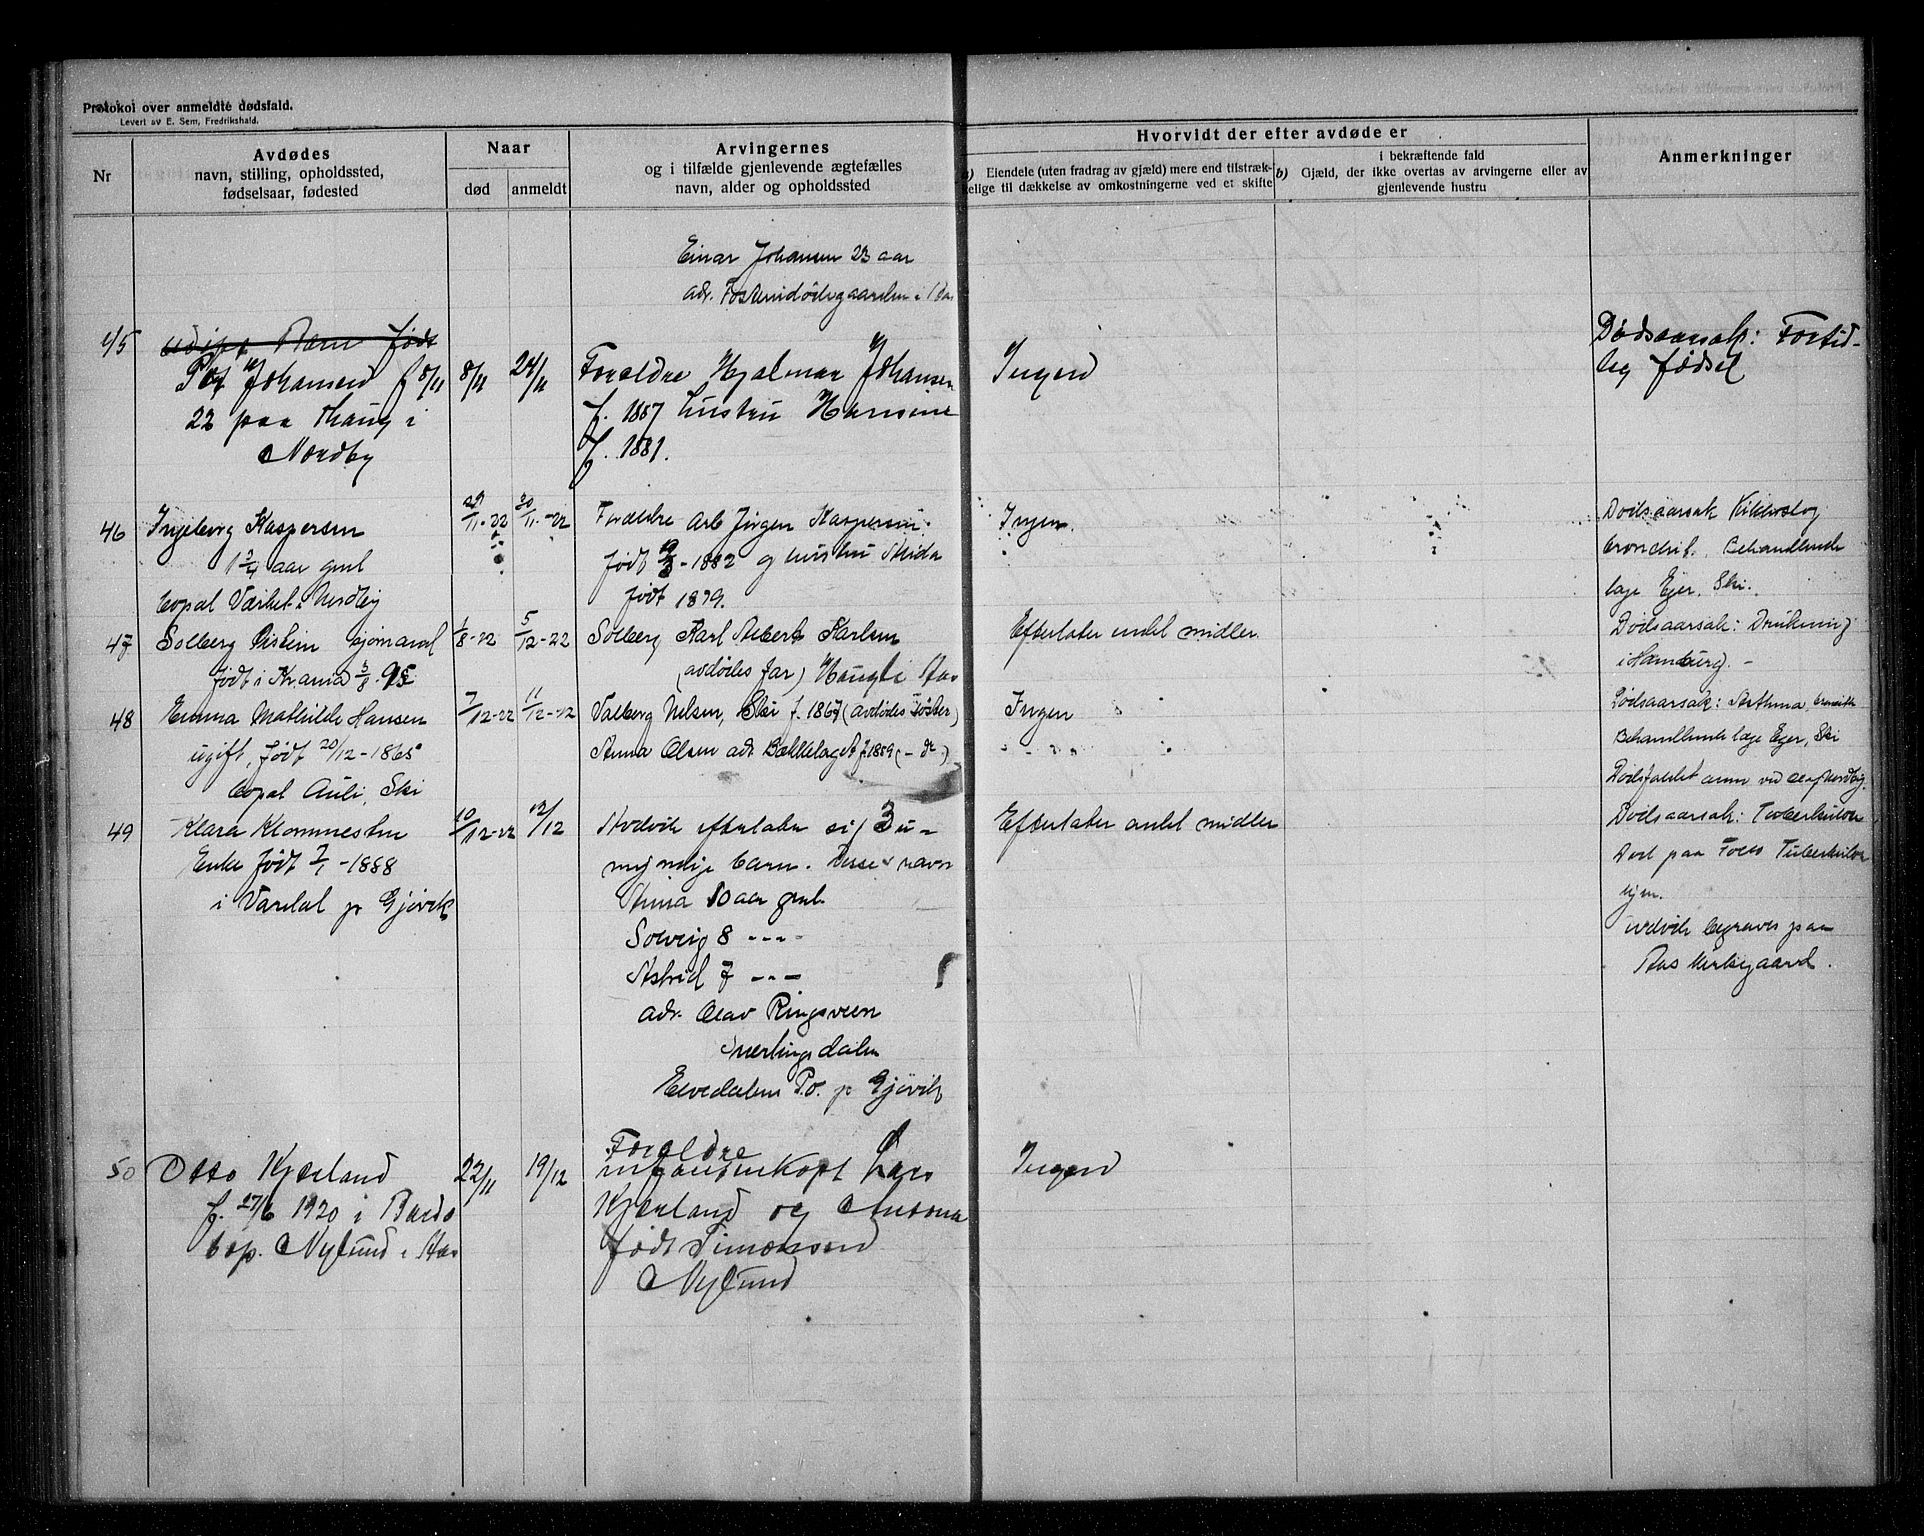 Protokol over anmeldte dødsfald.
Levert av E. Sem, Fredrikshald.
Nr
Avdødes
navn, stilling, opholdssted,
fødselsaar, fødested
Naar
død
anmeldt
Arvingernes
og i tilfælde gjenlevende ægtefælles
navn, alder og opholdssted
Hvorvidt der efter avdøde er
a) Eiendele (uten fradrag av gjæld) mere end tilstræk-
kelige til dækkelse av omkostningerne ved et skifte
b)
i bekræftende fald
Gjæld, der ikke overtas av arvingerne eller av
gjenlevende hustru
Anmerkninger
Einar Johansen 23 aar
adr. i Aas
45
Barn født
Johansen f 8/11
22 paa Haug i
Nordby
8/11
24/11
Foreldre Hjalmar Johansen
f. 1887 hustru Hansine
f. 1881.
Ingen
Dødsaarsak: Fortid-
lig fødsel
46
Ingeborg Kaspersen
1 3/4 aar gml
bopæl Værket i Nordby
29/11-22
30/11-22
Forældre Arb Jørgen Kaspersen
født 1882 og hustru
født 1879.
Ingen.
Dødsaarsak Kikhoste og
bronchit. Behandlende
læge Ejer, Ski.
47
Solberg Øistein sjømand
født i Krania 3/8-95
1/8-22
5/12-22
Solberg Karl Albert Karlsen
(avdødes far) Haugli Aas
Efterlater endel midler
Dødsaarsak: Drukning
i Hamburg. -
48
Emma Mathilde Hansen
ugift, født 20/12-1865
bopæl Auli, Ski
7/12-22
11/12-22
Valborg Nelsen, Ski f. 1867 (avdødes søster)
Anna Olsen adr Bækkelaget f. 1859 (- do -)
Ingen
Dødsaarsak: Asthma, bronchitt
Behandlende læge Ejer, Ski
Dødsfaldet anm ved Nordby.
49
Klara Klommesten
Enke født 7/1-1888
i Vardal pr Gjøvik
10/12-22
12/12
Avdøde efterlater sig 3 u-
myndige barn. Disses navn
Anna 10 aar gml.
Solveig 8 - - -
Astrid 7 - - -
adr. Olav Ringsveen
Snertingdalen
P.o. pr Gjøvik
Efterlater endel midler
Dødsaarsak: Tuberkulose
Død paa Follo Tuberkulose
hjem.
Avdøde begraves paa
Aas kirkegaard.
50
Otto Kjærland
f. 27/6 1920 i Bardo
bop. Nylund i Aas
22/11
19/12
Foreldre
Lars
Kjærland og
født Simonsen
Nylund
Ingen